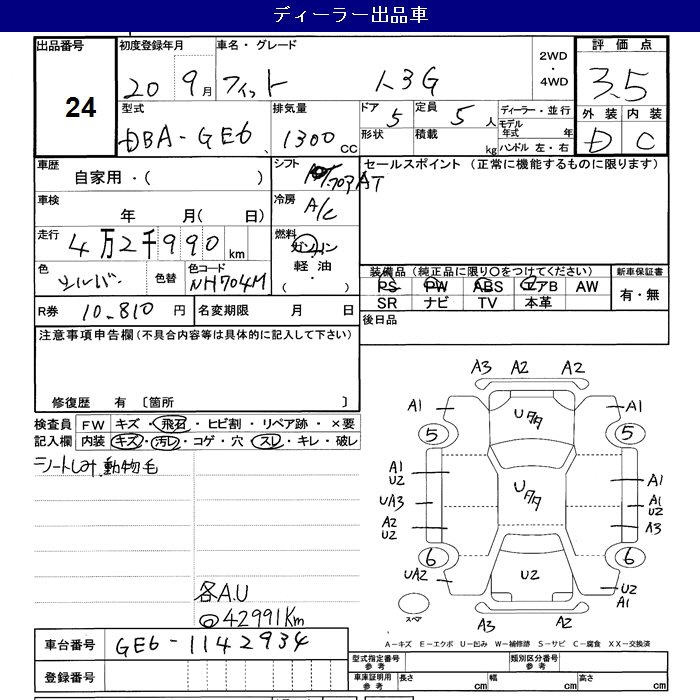 ディーラー出品車
出品番号 24
初度登録年月 20年 9月
車名・グレード フィット 1.3G
2WD・4WD
評価点 3.5
外装 D 内装 C
型式 DBA-GE6
排気量 1300 cc
ドア 5 定員 5 人
形状 積載 kg
ディーラー・並行
モデル年式 年
ハンドル 左・右
車歴 自家用・( )
シフト フロア AT
セールスポイント (正常に機能するものに限ります)
車検 年 月( 日)
冷房 A/C
走行 4万2千990 km
燃料 ガソリン・軽油・( )
色 シルバー 色替 色コード NH704M
装備品 (純正品に限り〇をつけてください) 新車保証書
PS PW ABS エアB AW 有・無
SR ナビ TV 本革
R券 10,810 円 名変期限 月 日
後日品
注意事項申告欄(不具合内容等は具体的に記入して下さい)
修復歴 有 〔箇所 〕
検査員記入欄 FW キズ・飛石・ヒビ割・リペア跡・×要
内装 キズ・汚レ・コゲ・穴・スレ・キレ・破レ
シートしみ、動物毛
各A.U
◎42991Km
A3 A2 A2
A1 A1
Uタタ
5 5
A1 U2
UA3
A2 U2
Uタタ
A1
A1 U2
A3
6 6
UA2 U2
U2 A1
スペア
A3 A2
A-キズ E-エクボ U-凹み W-補修跡 S-サビ C-腐食 XX-交換済
車台番号 GE6-1142934
登録番号
型式指定番号 参考 類別区分番号 参考
車庫証明用 参考 長さ cm 幅 cm 高さ cm